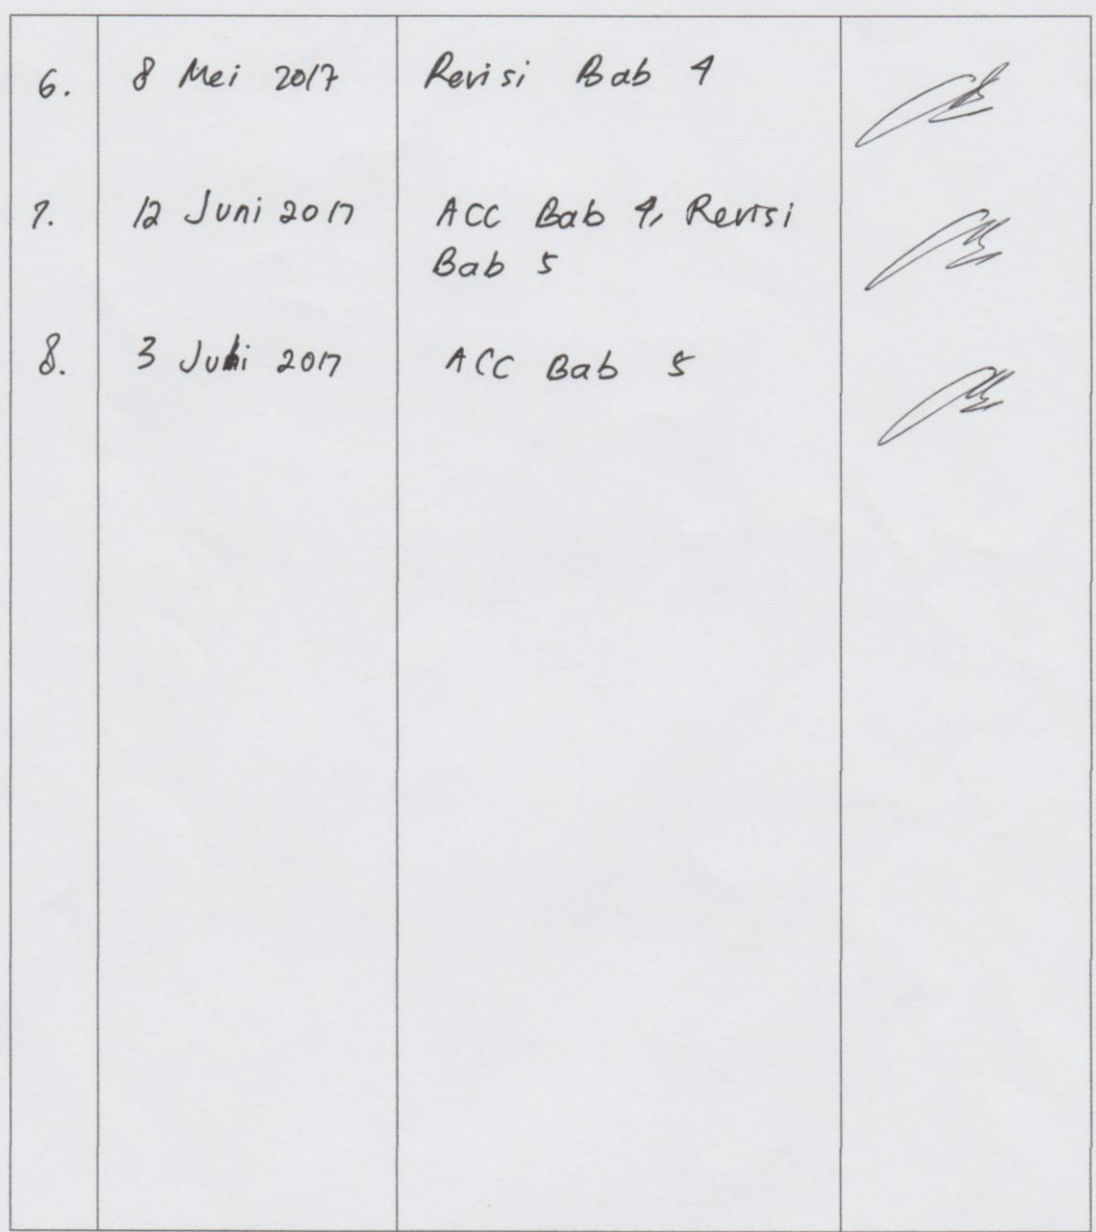 6. 8 Mei 2017 Revisi Bab 4
7. 12 Juni 2017 ACC Bab 4, Revisi
Bab 5
8. 3 Juli 2017 ACC Bab 5